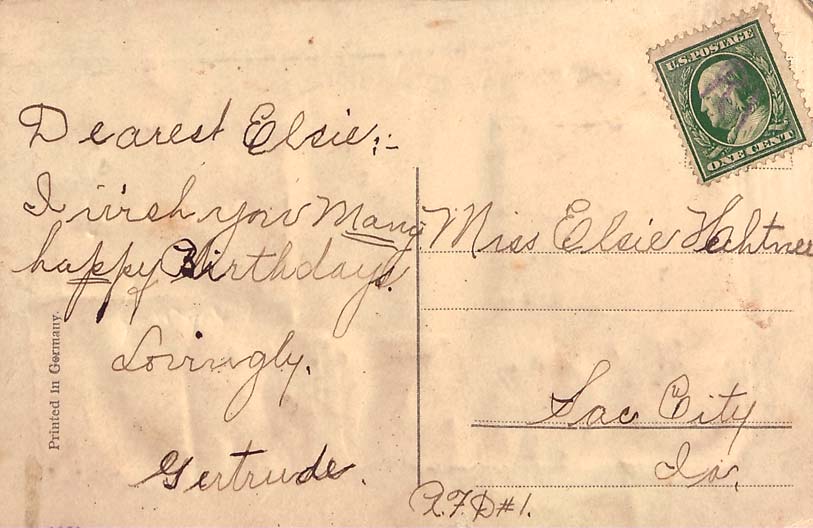 Dearest Elsie:-
I wish you Many
happy Birthdays.
Lovingly.
Gertrude.
Printed in Germany.
U.S. POSTAGE
ONE CENT
Miss Elsie
Sac City
Ia.
R.F.D #1.